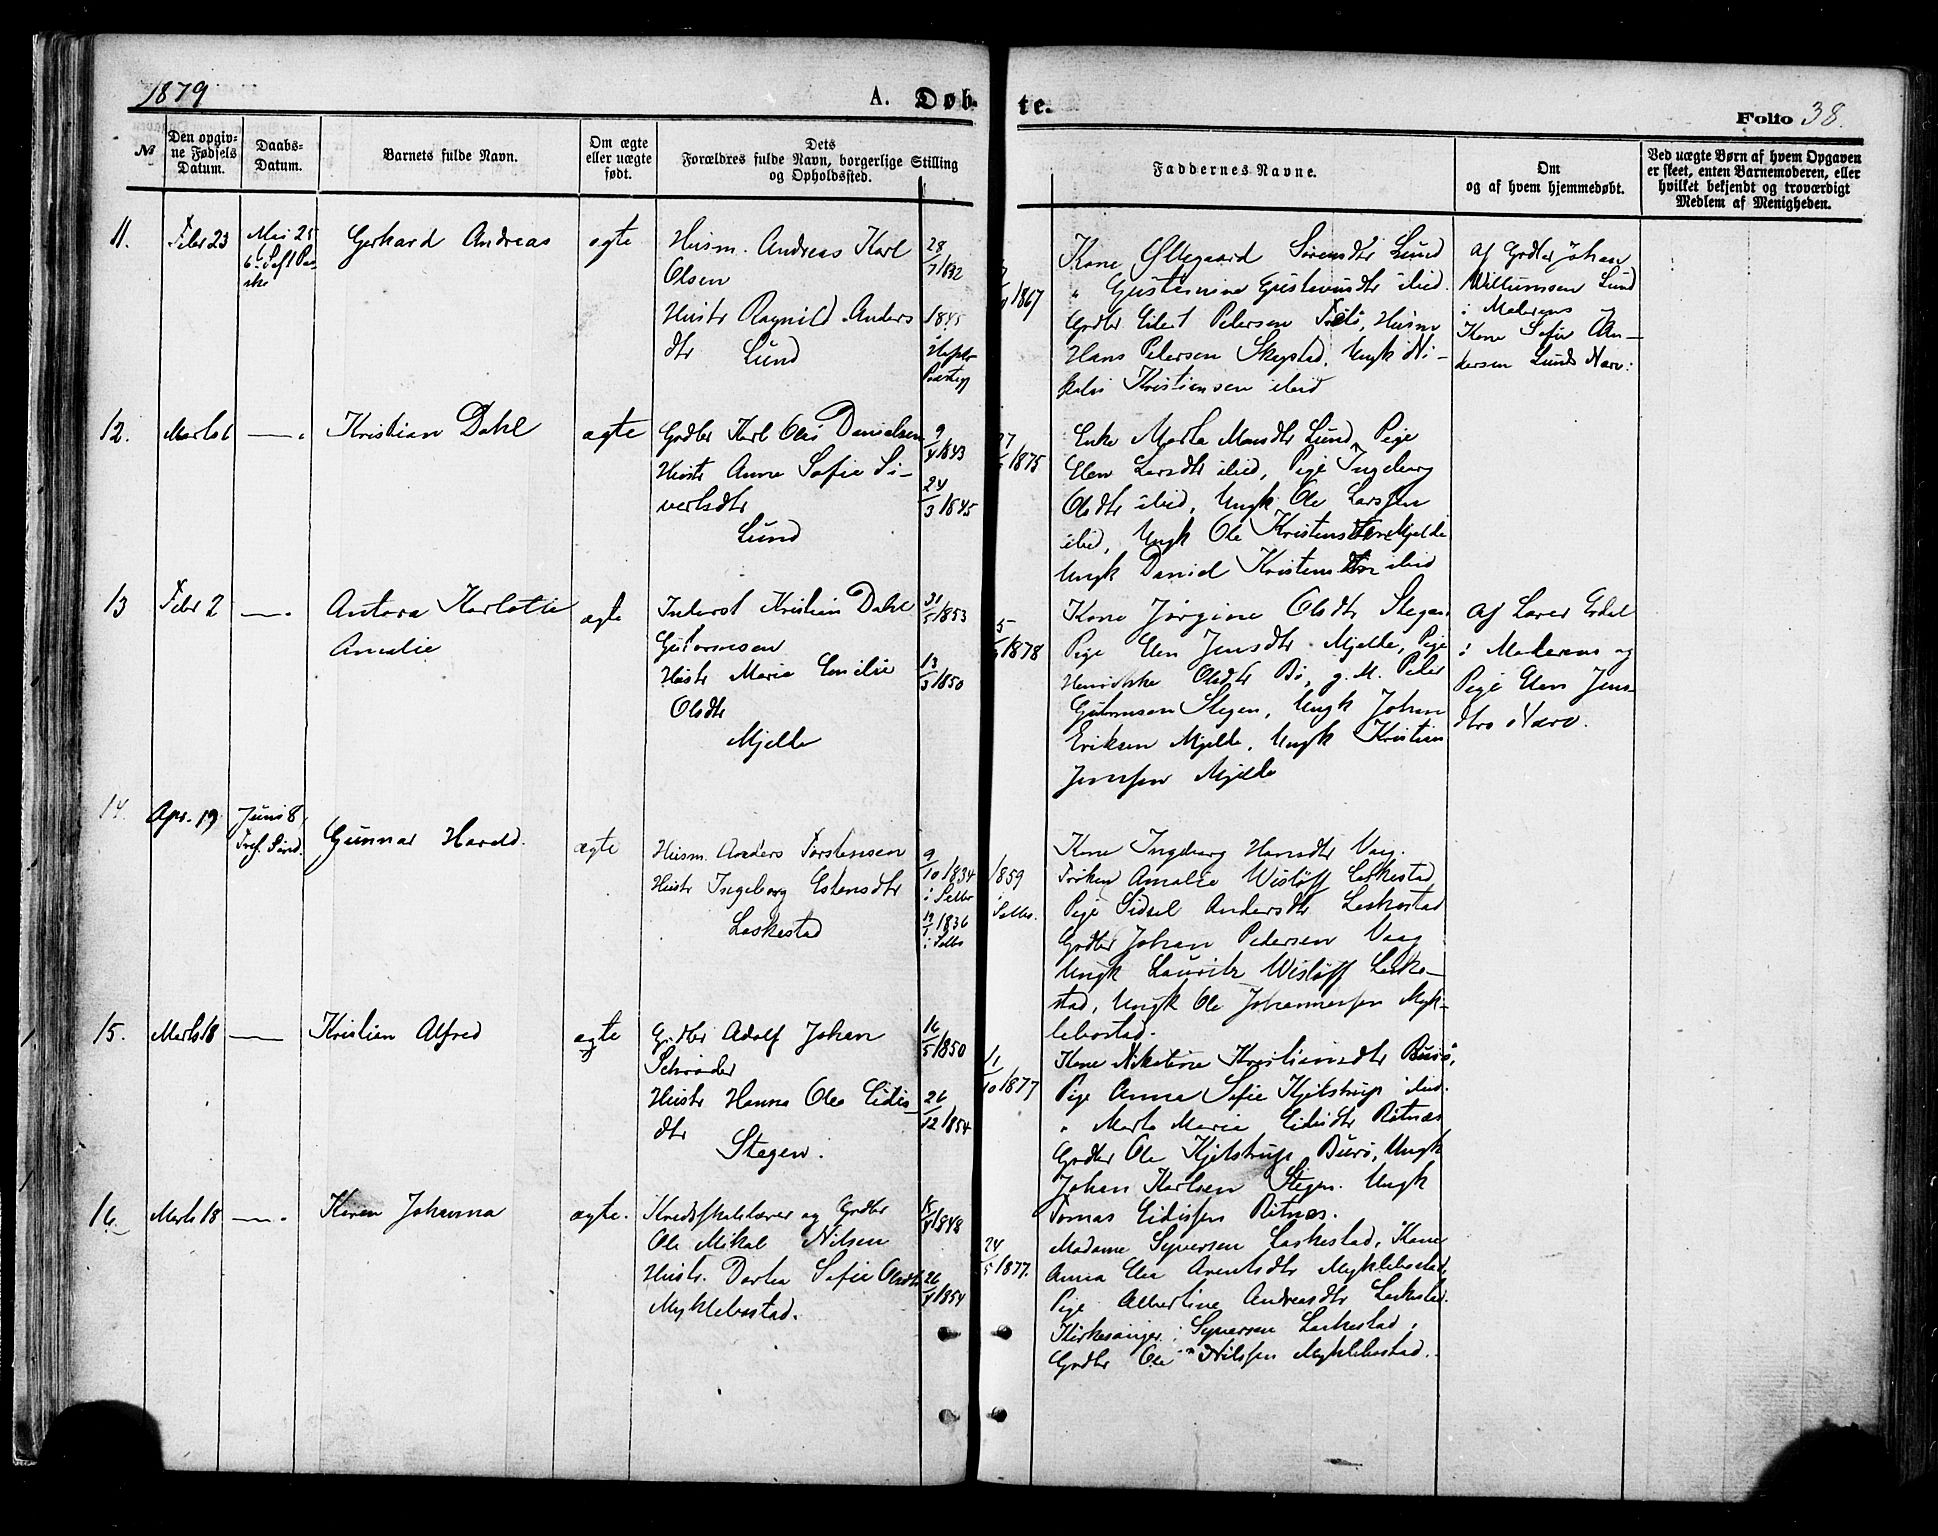 1879
A. Døb-
te.
Folio 38.
№
Den opgiv-
ne Fødsels
Datum.
Daabs-
Datum.
Barnets fulde Navn.
Om ægte
eller uægte
født.
Dets
Forældres fulde Navn, borgerlige Stilling
og Opholdssted.
Faddernes Navne.
Om
og af hvem hjemmedøbt.
Ved uægte Børn af hvem Opgaven
er skeet, enten Barnemoderen, eller
hvilket bekjendt og troværdigt
Medlem af Menigheden.
11. Febr 23
Mai 25
Gerhard Andreas
ægte
Husm. Andreas Karl
Olsen
Hustr Ragnild Anders
dtr Lund
28
1845
1867
Kone Øllegaard Sørensdtr Lund
" Gustavsdtr ibid.
Grdbr Eilert Petersen, Husm
Hans Petersen Skagstad, Ungk Ni-
kolai Kristiansen ibid
Af Grdbr Johan
Willumsen Lund
i Moderens
Kone Sofie An-
dersen Lunds Nærv:
12. Marts 6 —
Kristian Dahl
ægte
Grdbr Karl Olai Danielsen
Hustr Anne Sofie Si-
vertsdtr
Lund
9/4 1843
24/3 1845
1875
Enke Marta Monsdtr Lund, Pige
Elen Larsdtr ibid, Pige Ingeborg
Olsdtr ibid, Ungk Ole Larssen
ibid, Ungk Ole Kristensen Mjelde
Ungk Daniel Kristensen ibid
13 Febr 2 —
Antora Karlotte
Amalie
ægte
Inderst Kristian Dahl
Gutormsen
Hustr Maria Emilie
Olsdtr
Mjelde
31/5 1853
13/3 1850
5
1878
Kone Jørgine Olsdtr Stegen
Pige Elen Jensdtr Mjelde, Pige
Henrikke Olsdtr Bø, g. M. Peder
Gutormsen Stegen, Ungk Johan
Eriksen Mjelde, Ungk Kristian
Jenssen Mjelde
Af Lærer Edel
i Moderens og
Pige Elen Jens-
dtrs Nærv.
14. Apr. 19
Juni 8
Tref. Sönd.
Gunnar Harald.
ægte
Husm. Anders Torstensen
Hustr Ingeborg Estensdtr
Laskestad
9/10 1834
i Selbo
19/1 1836
i Selbo
1859
i Selbo.
Kone Ingeborg Hansdtr Vaag.
Frøken Amalie Wisløff Laskestad
Pige Sidsel Andersdtr Laskestad
Grdbr Johan Pedersen Vaag
Ungk Lauritz Wisløff Laske-
stad, Ungk Ole Johannessen Myk-
lebostad.
15. Marts 18 —
Kristian Alfred
ægte
Grdbr Adolf Johan
Schrøder
Hustr Hanna Olea Eidis-
dtr
Stegen.
16/5 1850
26/12 1854
11/10 1877
Kone Nikoline Kristiansdtr Burø,
Pige Anna Sofie Kjelstrup ibid.
" Marta Maria Eidisdtr Ritnæs
Grdbr Ole Kjelstrup Burø, Ungk
Johan Karlsen Stegen. Ungk
Tomas Eidissen Ritnæs.
16. Marts 18 —
Karen Johanna
ægte.
Kredsskolelærer og Grdbr
Ole Mikal Nilsen
Hustr. Dortea Sofie Olsdtr
Myklebostad.
1848
1854
24/5 1877.
Madame Syversen Laskestad, Kone
Anna Elea Arentsdtr Myklebostad,
Pige Albertine Andreasdtr Laskestad.
Kirkesanger Syversen Laskestad,
Grdbr Ole Nilssen Myklebostad.